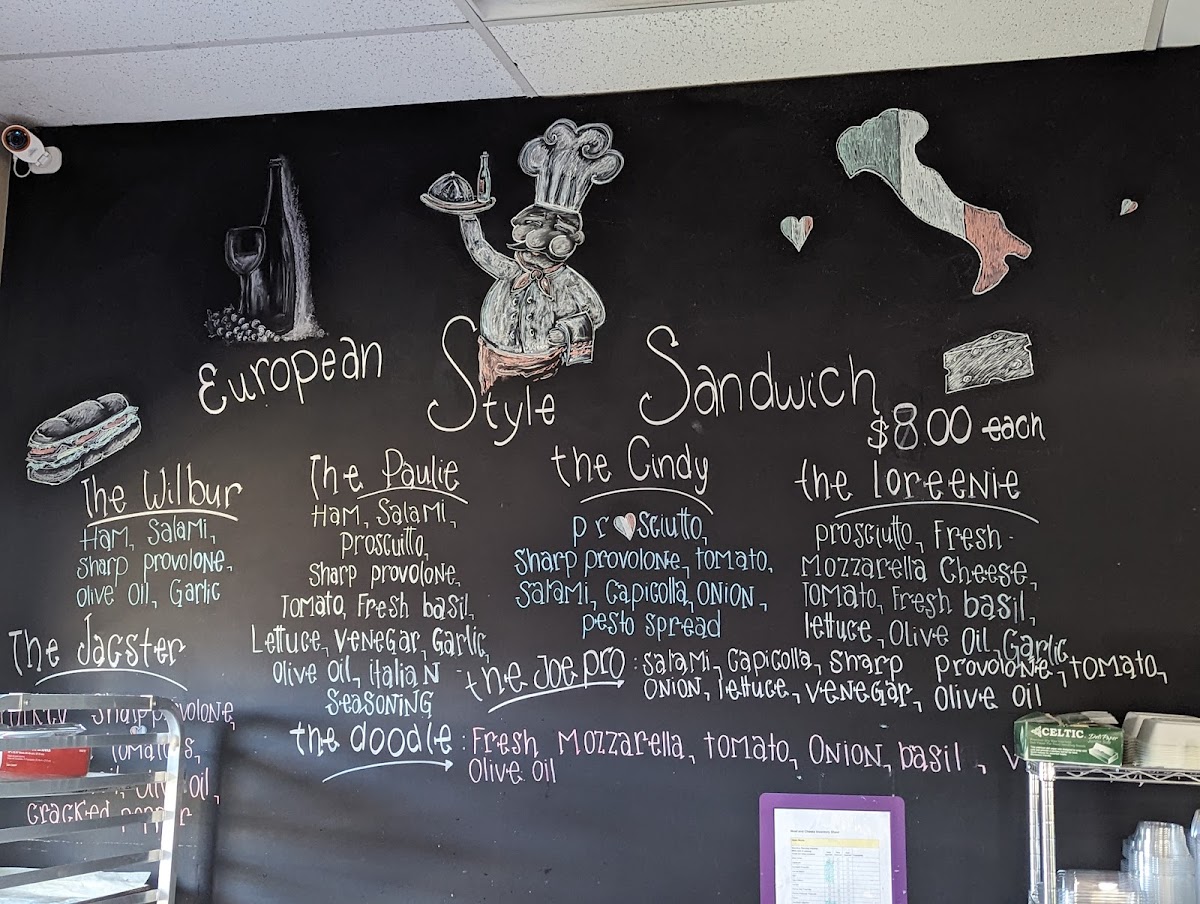 European Style Sandwich
$8.00 each
The Wilbur
Ham, Salami,
sharp provolone,
Olive Oil, Garlic
The Paulie
Ham, Salami,
Proscuitto,
sharp provolone,
Tomato, Fresh basil,
Lettuce, venegar, Garlic,
Olive Oil, italian
Seasoning
the Cindy
prosciutto,
Sharp provolone, tomato,
Salami, Capicolla, Onion,
pesto spread
the Loreenie
prosciutto, Fresh
Mozzarella Cheese,
Tomato, Fresh basil,
lettuce, Olive Oil, Garlic
The Jacster
Sharp provolone,
cracked pepper
the Joe pro : Salami, Capicolla, Sharp provolone, tomato,
Onion, lettuce, venegar, Olive Oil
the doodle : Fresh Mozzarella, tomato, Onion, basil,
Olive Oil
CELTIC
Deli Paper